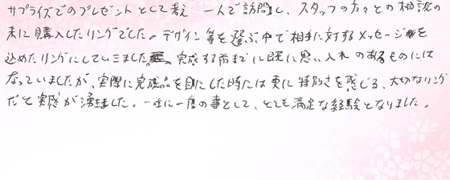 サプライズでのプレゼントとして考え 一人で訪問し、スタッフの方々との相談の
末に購入したリングでした。デザイン等を選ぶ中で相手に対するメッセージを
込めたリングにしていきました。完成する前までに既に思い入れのあるものには
なっていましたが、実際に完成品を目にした時には更に特別さを感じる、大切なリング
だと実感が湧きました。一生に一度の事として、とても満足な経験となりました。